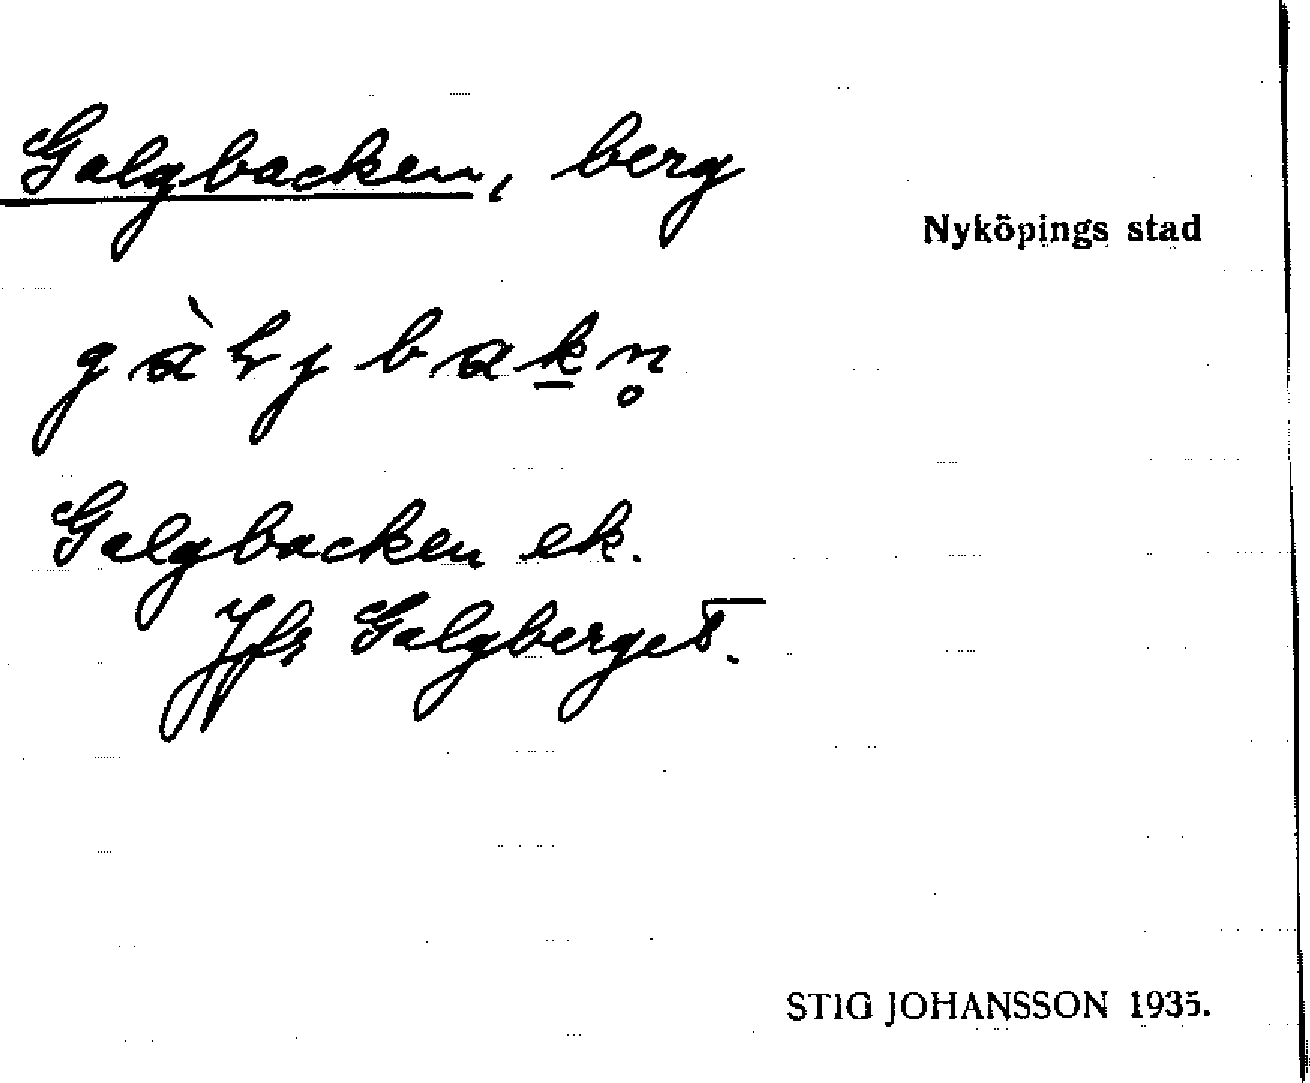 Galgbacken, berg
Nyköpings stad
gàlɉbak̲n̥
Galgbacken ek.
Jfr Galgberget.
STIG JOHANSSON 1935.